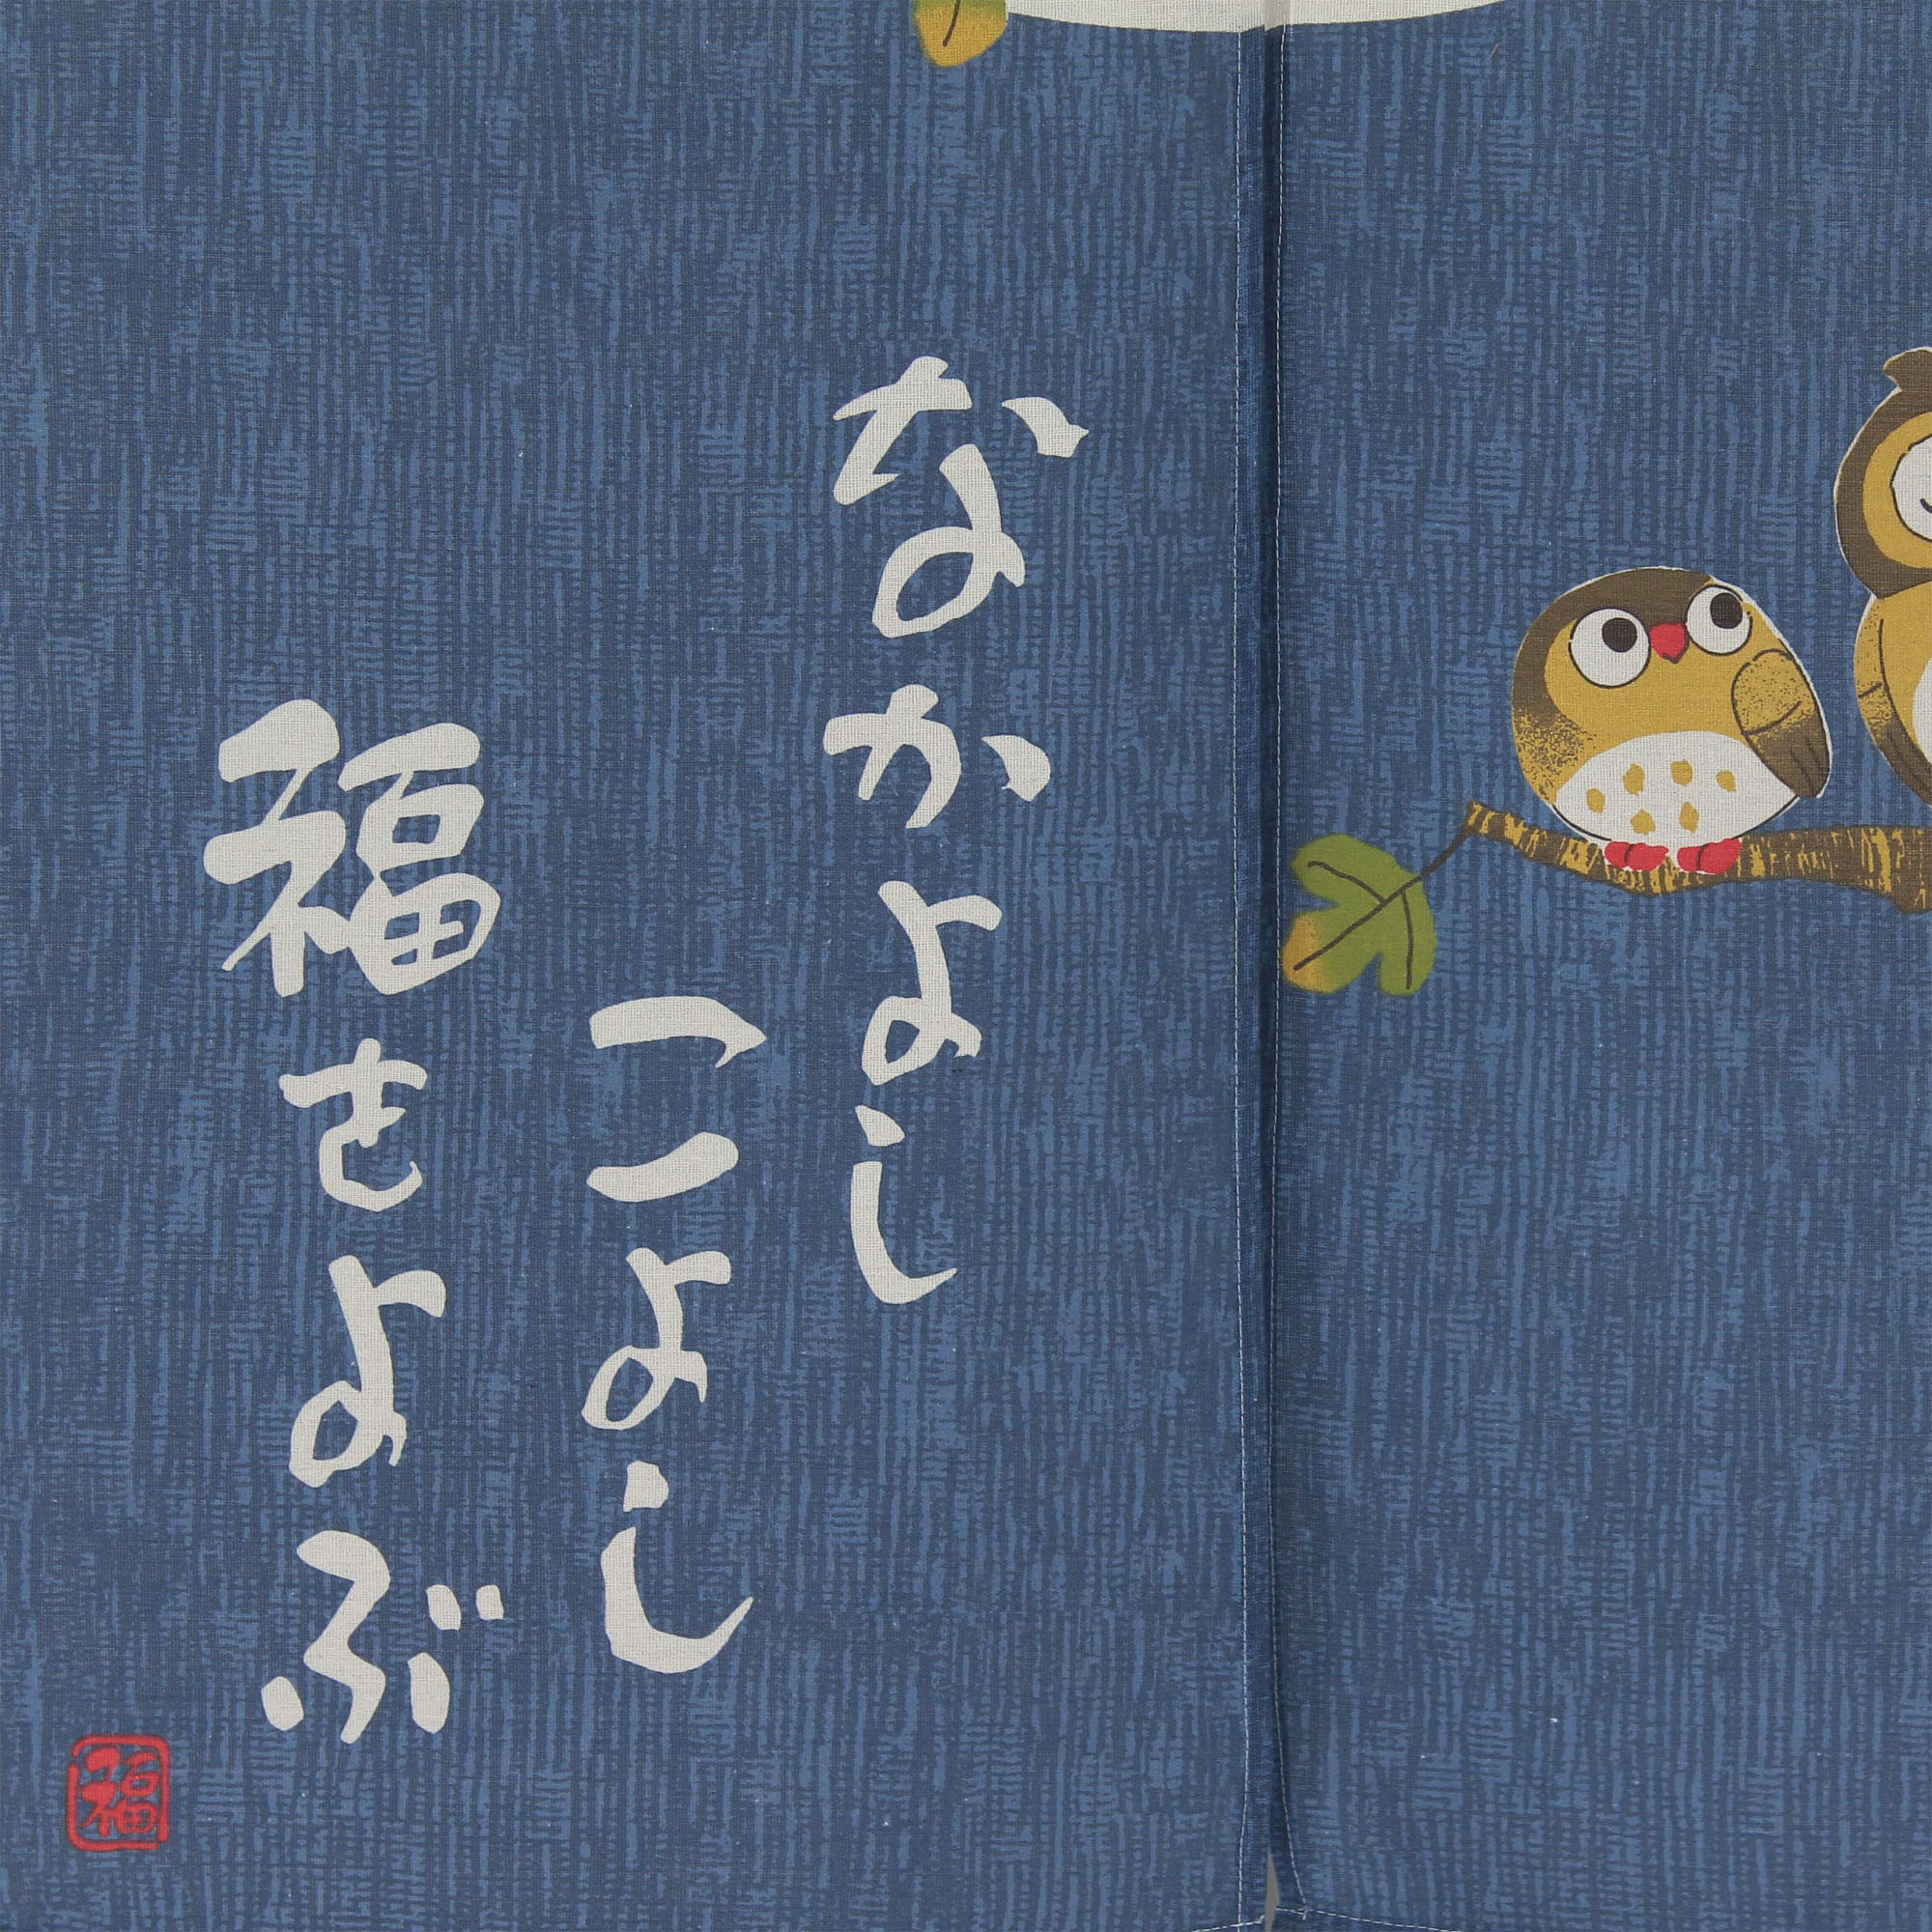 なかよし
こよし
福をよぶ
福